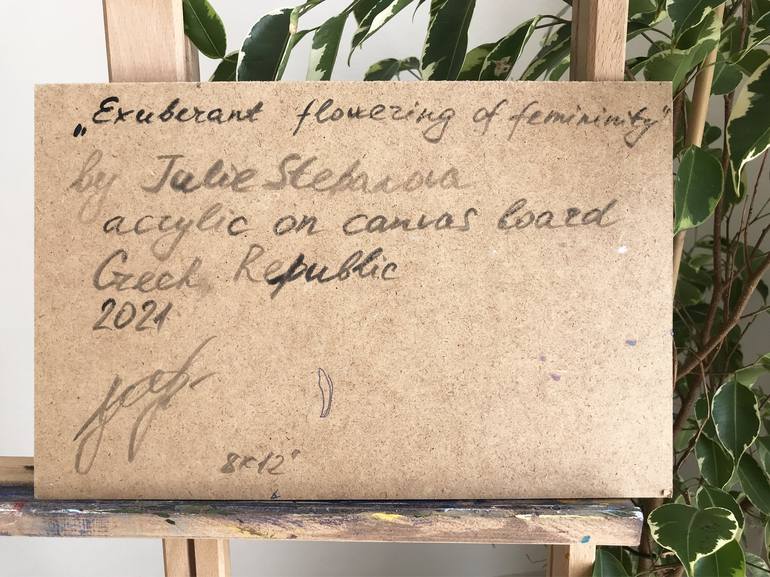 „Exuberant flowering of femininity"
by Julie Stepanova
acrylic on canvas board
Czech Republic
2021
8x12"